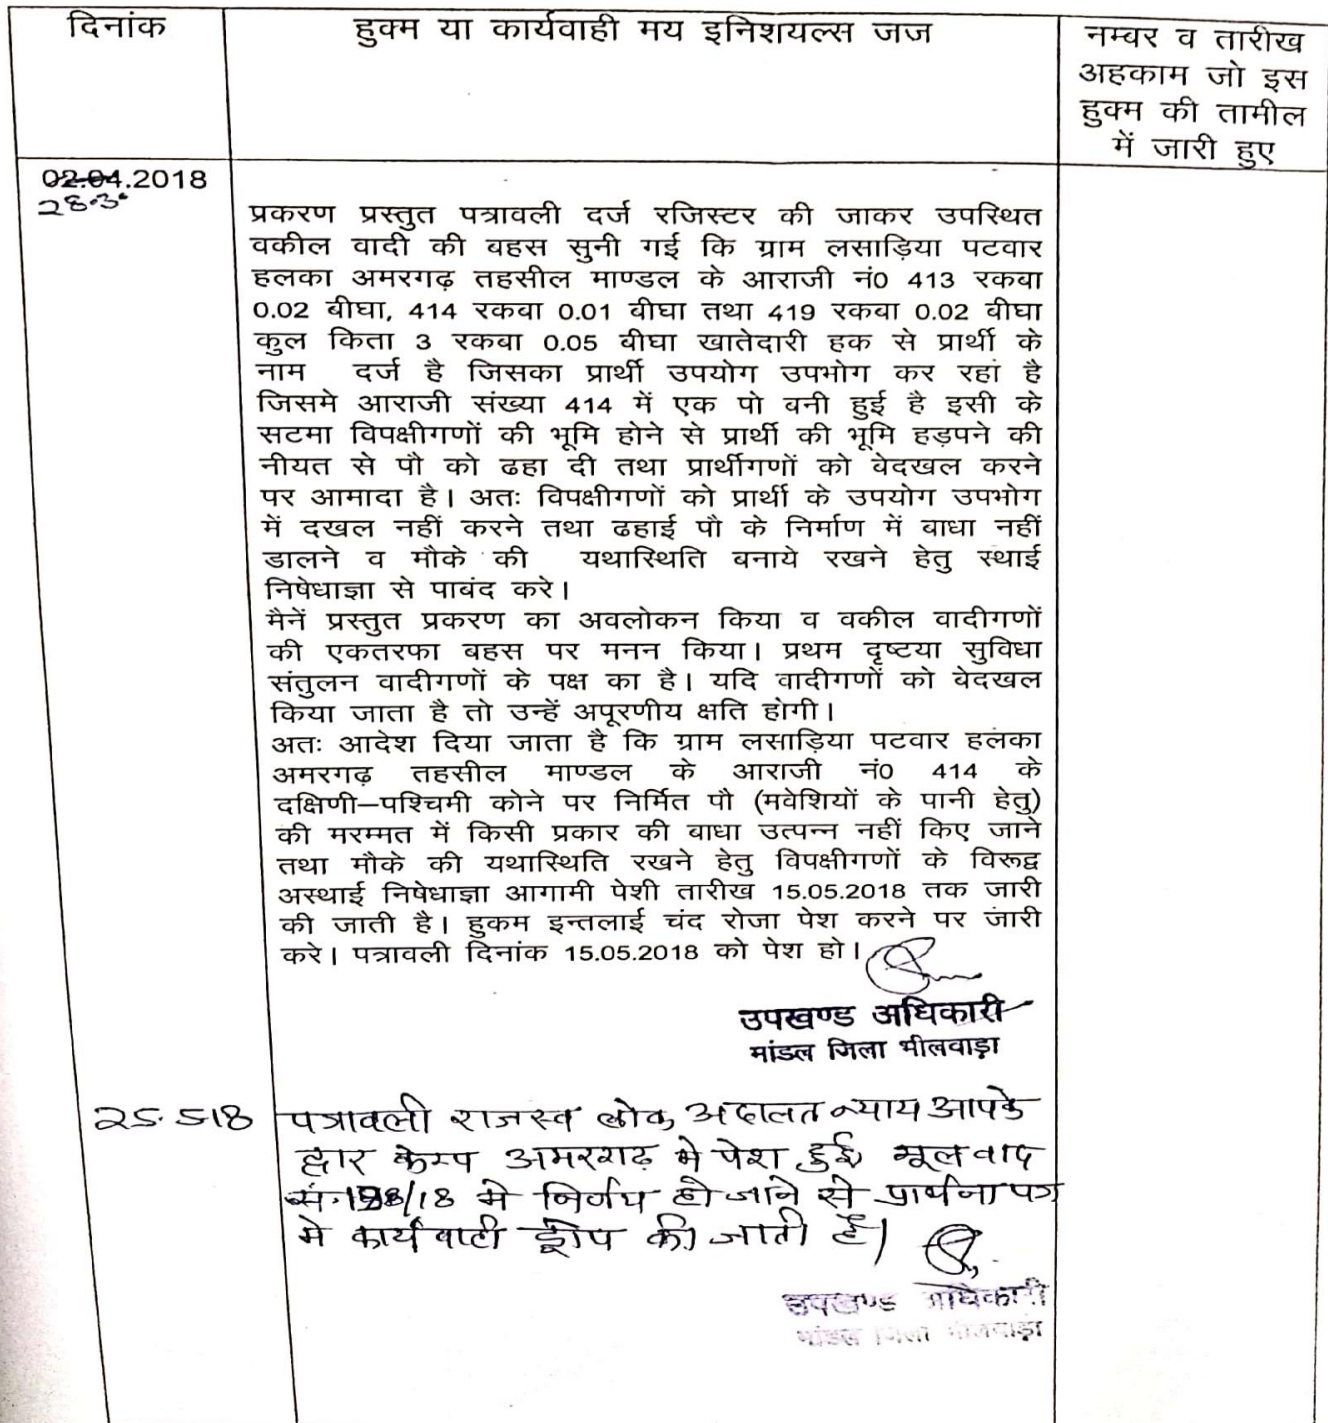 दिनांक
हुक्म या कार्यवाही मय इनिशयल्स जज
नम्बर व तारीख
अहकाम जो इस
हुक्म की तामील
में जारी हुए
02.04.2018
28.3.
प्रकरण प्रस्तुत पत्रावली दर्ज रजिस्टर की जाकर उपस्थित
वकील वादी की बहस सुनी गई कि ग्राम लसाड़िया पटवार
हलका अमरगढ़ तहसील माण्डल के आराजी नं0 413 रकवा
0.02 बीघा, 414 रकवा 0.01 बीघा तथा 419 रकवा 0.02 बीघा
कुल किता 3 रकबा 0.05 बीघा खातेदारी हक से प्रार्थी के
नाम दर्ज है जिसका प्रार्थी उपयोग उपभोग कर रहां है
जिसमे आराजी संख्या 414 में एक पो बनी हुई है इसी के
सटमा विपक्षीगणों की भूमि होने से प्रार्थी की भूमि हड़पने की
नीयत से पौ को ढहा दी तथा प्रार्थीगणों को बेदखल करने
पर आमादा है। अतः विपक्षीगणों को प्रार्थी के उपयोग उपभोग
में दखल नहीं करने तथा ढहाई पौ के निर्माण में बाधा नहीं
डालने व मौके की यथास्थिति बनाये रखने हेतु स्थाई
निषेधाज्ञा से पाबंद करे।
मैनें प्रस्तुत प्रकरण का अवलोकन किया व वकील वादीगणों
की एकतरफा बहस पर मनन किया। प्रथम दृष्टया सुविधा
संतुलन वादीगणों के पक्ष का है। यदि वादीगणों को बेदखल
किया जाता है तो उन्हें अपूरणीय क्षति होगी।
अतः आदेश दिया जाता है कि ग्राम लसाड़िया पटवार हलका
अमरगढ़ तहसील माण्डल के आराजी नं0 414 के
दक्षिणी–पश्चिमी कोने पर निर्मित पौ (मवेशियों के पानी हेतु)
की मरम्मत में किसी प्रकार की बाधा उत्पन्न नहीं किए जाने
तथा मौके की यथास्थिति रखने हेतु विपक्षीगणों के विरूद्व
अस्थाई निषेधाज्ञा आगामी पेशी तारीख 15.05.2018 तक जारी
की जाती है। हुकम इन्तलाई चंद रोजा पेश करने पर जारी
करे। पत्रावली दिनांक 15.05.2018 को पेश हो।
उपखण्ड अधिकारी
मांडल जिला भीलवाड़ा
25.5.18
पत्रावली राजस्व लोक अदालत न्याय आपके
द्वार केम्प अमरगढ़ मे पेश हुई, मूलवाद
सं. /18 मे निर्णय हो जाने से प्रार्थना पत्र
मे कार्यवाही ड्रोप की जाती है।
उपखण्ड अधिकारी
मांडल जिला भीलवाड़ा